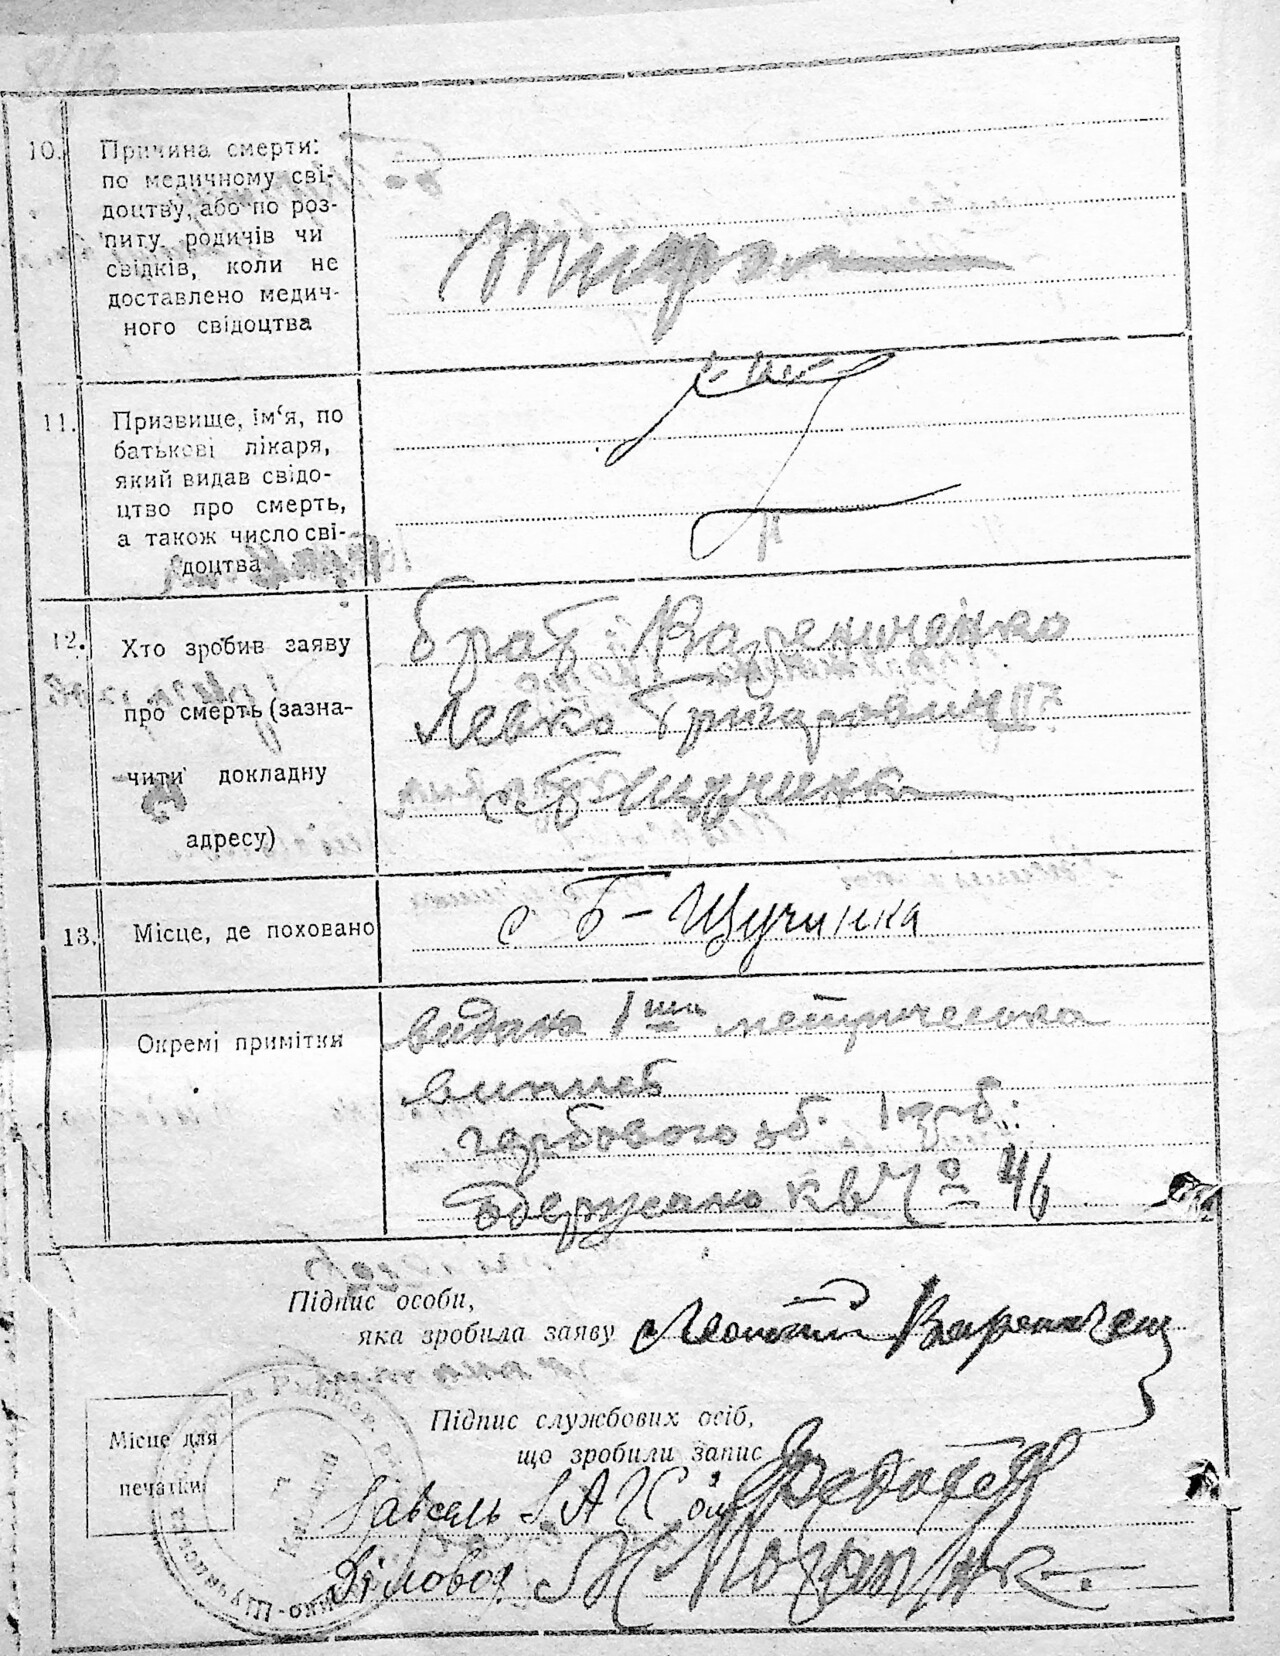 10. Причина смерти:
по медичному сві-
доцтву, або по роз-
питу родичів чи
свідків, коли не
доставлено медич-
ного свідоцтва
11. Призвище, ім‘я, по
батькові лікаря,
який видав свідо-
цтво про смерть,
а також число сві-
доцтва
12. Хто зробив заяву
про смерть (зазна-
чити докладну
адресу)
брат Варениченко
Левко Григорович
с Б-Щучинка
13. Місце, де поховано
с Б-Щучинка
Окремі примітки
видана 1ша метрическа
випись
гербового зб. 1 крб.
Одержано кв Ч° 46
Підпис особи,
яка зробила заяву
Місце для
печатки
Підпис службових осіб,
що зробили запис
Діловод